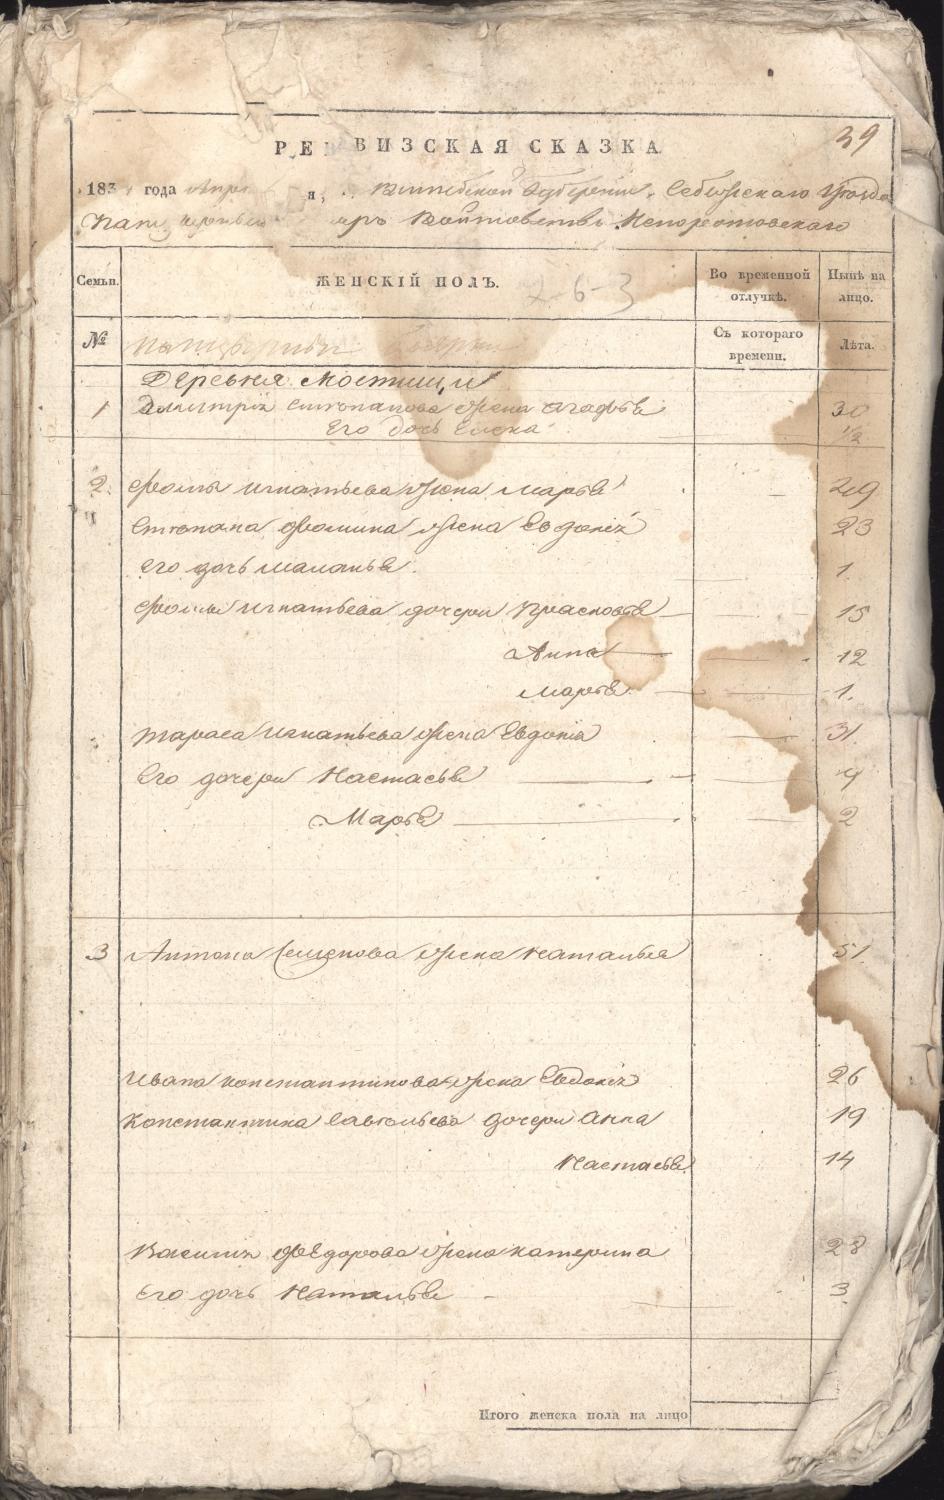 39
РЕВИЗСКАЯ СКАЗКА
183 года Витебской Губернии, Себежскаго Уезда
Войтовства Непоротовскаго
Семьи.
ЖЕНСКІЙ ПОЛЪ.
Во временной отлучкѣ.
Нынѣ на лицо.
№
Съ котораго времени.
Лѣта.
Деревня Мостищи
1 Дмитрія Степанова жена Агафья 30
Его дочь Елена 1/2
2 Фомы Игнатьева жена Марья 49
Степана Фомина жена Евдокія 23
его дочь Маланья 1
Фомы Игнатьева дочери Прасковья 15
Анна 12
Марья 1.
Тараса Игнатьева жена Евдокія 31
Его дочери Настасья 4
Марья 2
3 Антона Семенова жена Наталья 51
Ивана Константинова жена Евдокія 26
Константина Савельева дочери Анна 19
Настасья 14
Василія Федорова жена Катерина 28
Его дочь Наталья 3
Итого женска пола на лицо